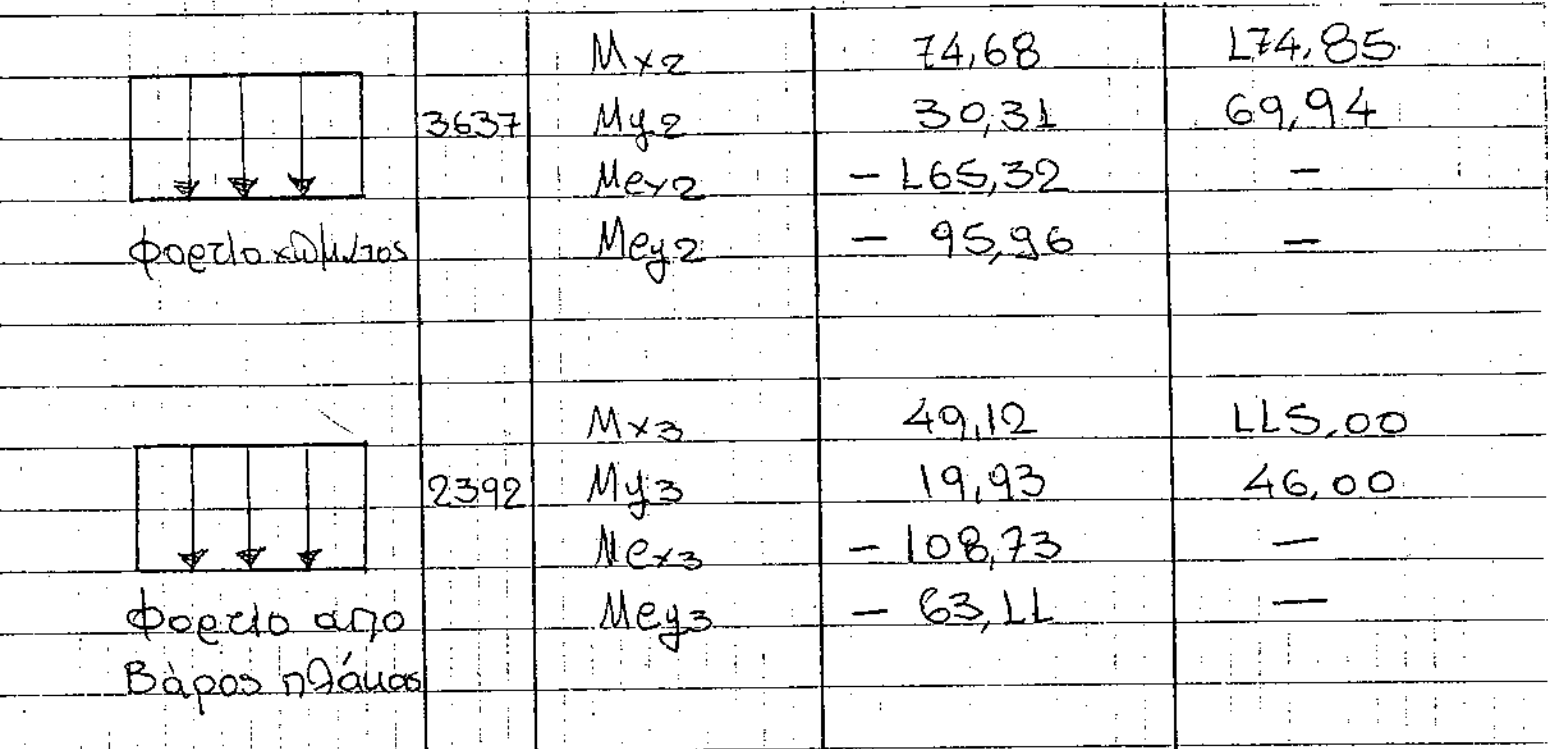 Mx2 74,68 174,85
3637 My2 30,31 69,94
Mex2 - 165,32 -
φορτίο χώματος Mey2 - 95,96 -
Mx3 49,12 115,00
2392 My3 19,93 46,00
Mex3 - 108,73 -
φορτίο από Mey3 - 63,11 -
Βάρος πλάκας